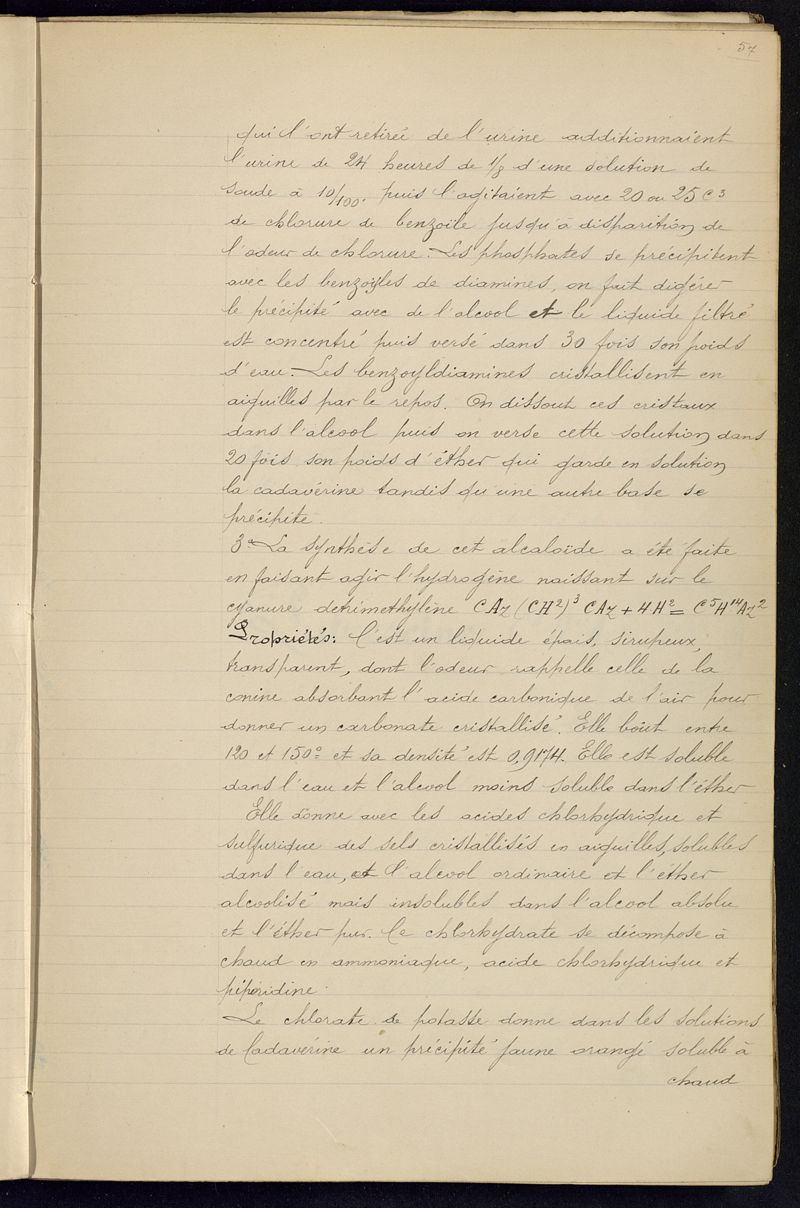 57
qui l'ont retirée de l'urine additionnaient
l'urine de 24 heures de 1/8 d'une solution de
soude à 10/100. puis l'agitaient avec 20 ou 25 C3
de chlorure de benzoïle jusqu'à disparition de
l'odeur de chlorure. Les phosphates se précipitent
avec les benzoyles de diamines, on fait digérer
le précipité avec de l'alcool et le liquide filtré
est concentré puis versé dans 30 fois son poids
d'eau. Les benzoyldiamines cristallisent en
aiguilles par le repos. On dissout ces cristaux
dans l'alcool puis on verse cette solution dans
20 fois son poids d'éther qui garde en solution
la cadavérine tandis qu'une autre base se
précipite.
3° La synthèse de cet alcaloïde a été faite
en faisant agir l'hydrogène naissant sur le
cyanure detriméthylène CAz (CH²)³ CAz + 4H² = C⁵H¹⁴Az²
Propriétés: C'est un liquide épais, sirupeux,
transparent, dont l'odeur rappelle celle de la
conine absorbant l'acide carbonique de l'air pour
donner un carbonate cristallisé. Elle bout entre
120 et 150° et sa densité est 0,9174. Elle est soluble
dans l'eau et l'alcool moins soluble dans l'éther
Elle donne avec les acides chlorhydrique et
sulfurique des sels cristallisés en aiguilles, solubles
dans l'eau, et l'alcool ordinaire et l'éther
alcoolisé mais insolubles dans l'alcool absolu
et l'éther pur. Ce chlorhydrate se décompose à
chaud en ammoniaque, acide chlorhydrique et
pipéridine.
Le chlorate de potasse donne dans les solutions
de Cadavérine un précipité jaune orangé soluble à
chaud